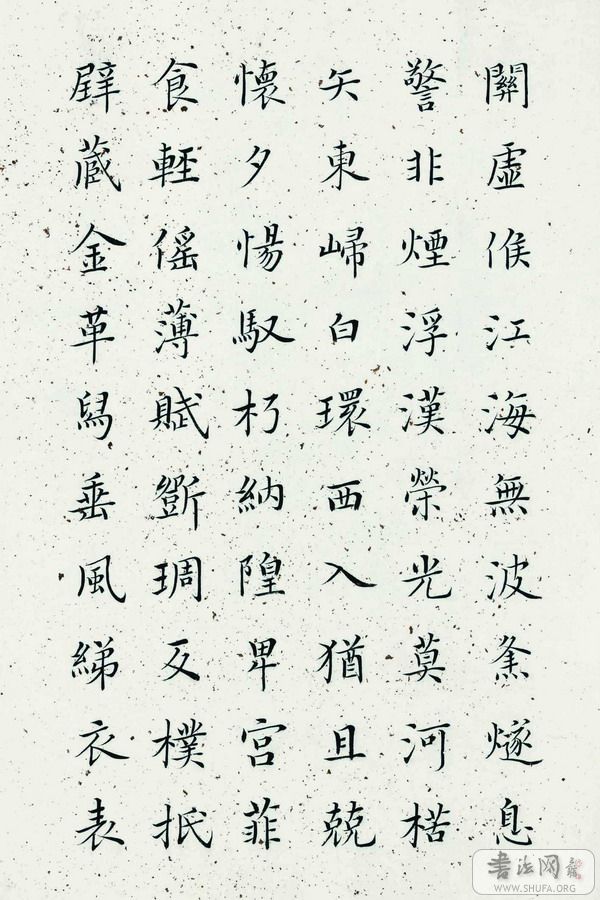 關虛候江海無波㷭燧息
警非煙浮漢榮光莫河楛
矢東歸白環西入猶且兢
懷夕惕馭朽納隍卑宮菲
食輕徭薄賦斲琱反樸抵
璧藏金革舄垂風綈衣表
书法网
WWW.SHUFA.ORG